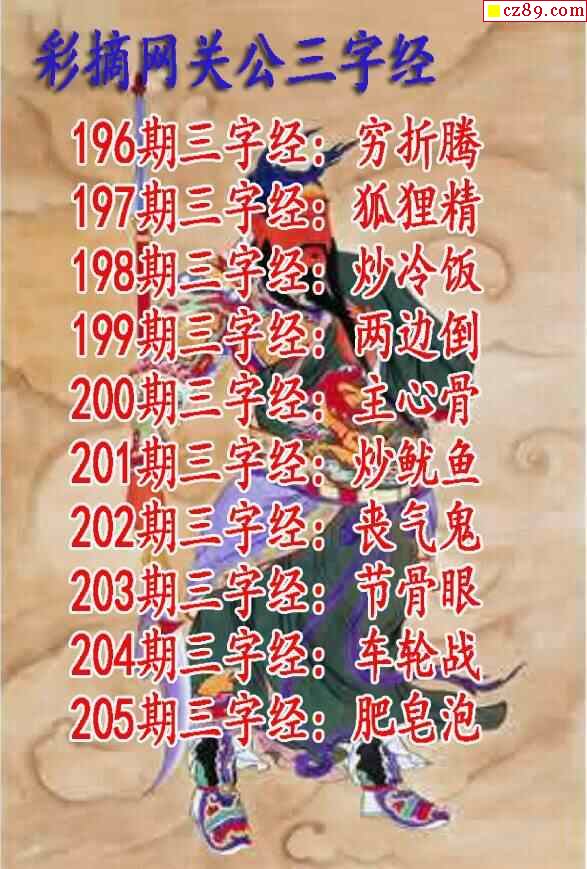 cz89.com
彩摘网关公三字经
196期三字经：穷折腾
197期三字经：狐狸精
198期三字经：炒冷饭
199期三字经：两边倒
200期三字经：主心骨
201期三字经：炒鱿鱼
202期三字经：丧气鬼
203期三字经：节骨眼
204期三字经：车轮战
205期三字经：肥皂泡